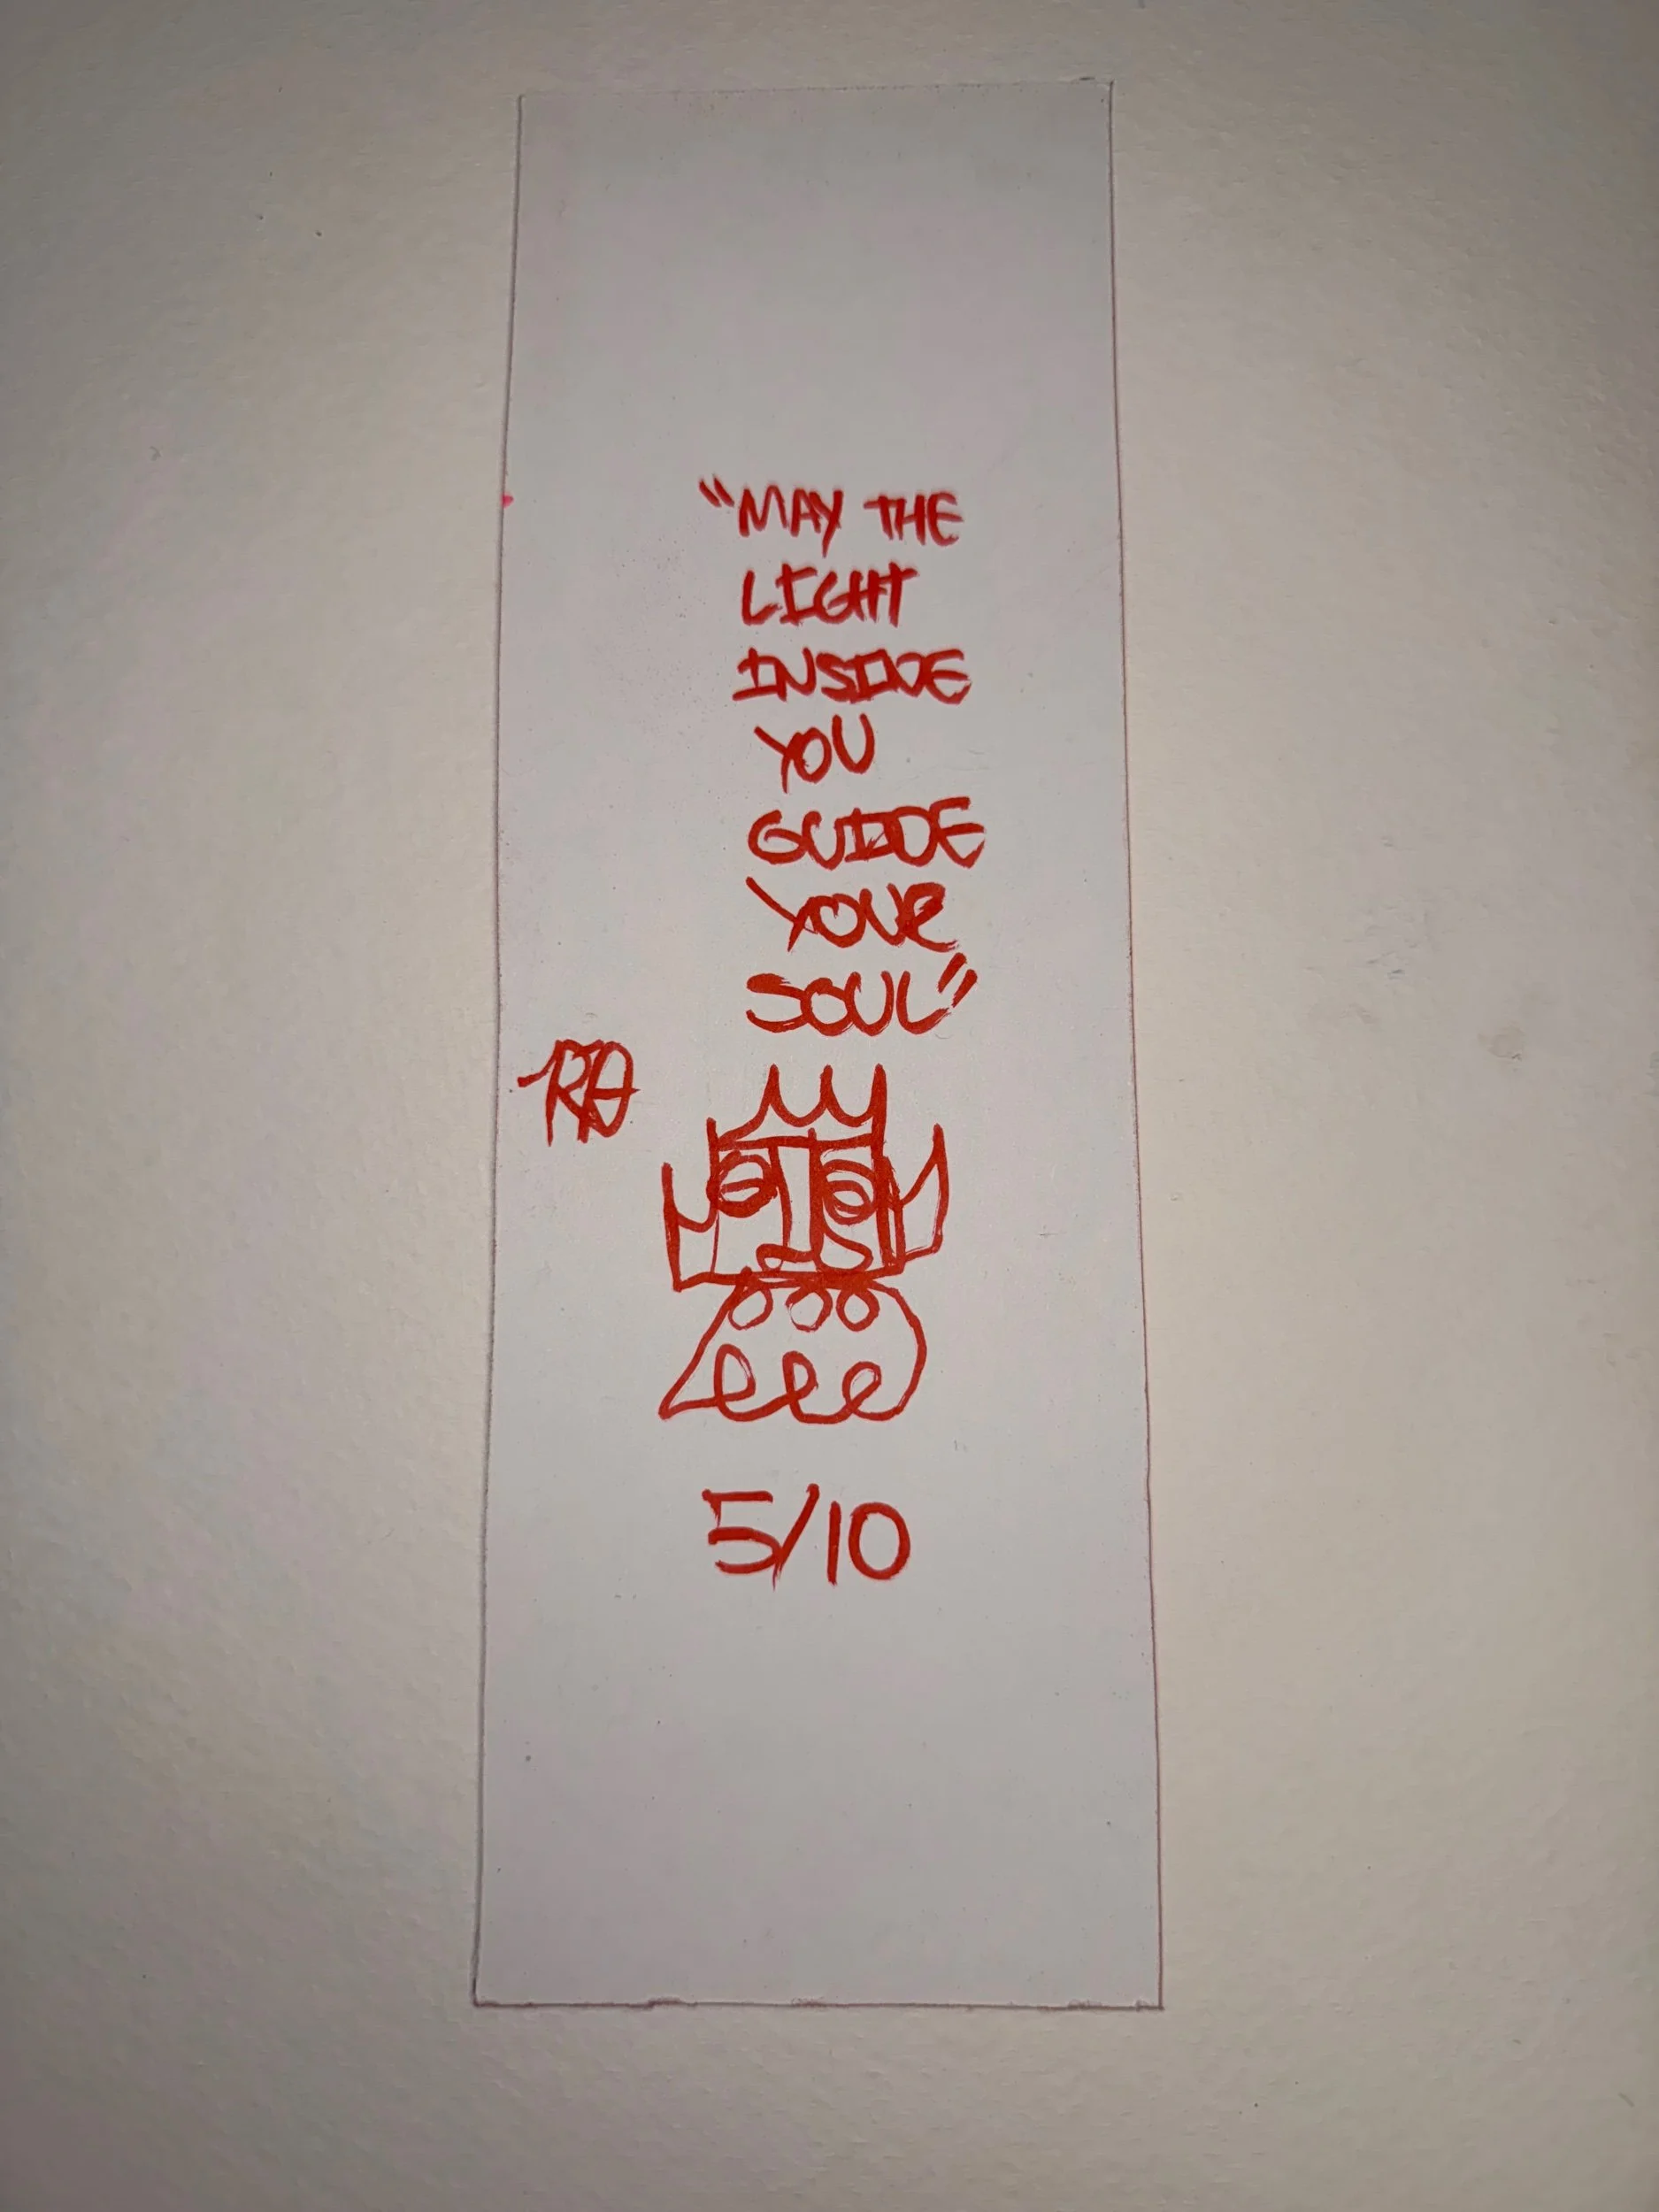 "MAY THE
LIGHT
INSIDE
YOU
GUIDE
YOUR
SOUL"
5/10